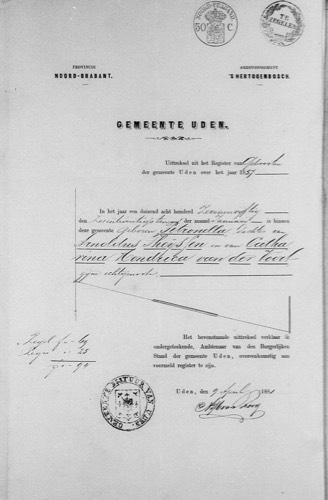 50 C
TE ZEGELEN
PROVINCIE
NOORD-BRABANT.
ARRONDISSEMENT
'S HERTOGENBOSCH.
GEMEENTE UDEN.
Uittreksel uit het Register van Geboorte
der gemeente Uden over het jaar 1857
In het jaar een duizend acht honderd Zevenenvyftig
den Zesentwintigsten der maand Januari is binnen
deze gemeente Geboren Petronella dochter van
Arnoldus Thyssen en van Catha
rina Hendrika van der Voort
zyne echtgenoote
Het bovenstaande uittreksel verklaar ik
ondergeteekende, Ambtenaar van den Burgerlijken
Stand der gemeente Uden, overeenkomstig aan
voormeld register te zijn.
Zegel f 0.69
Leges 0.25
0.94
Uden, den 9 April 1881
GEMEENTE BESTUUR VAN UDEN